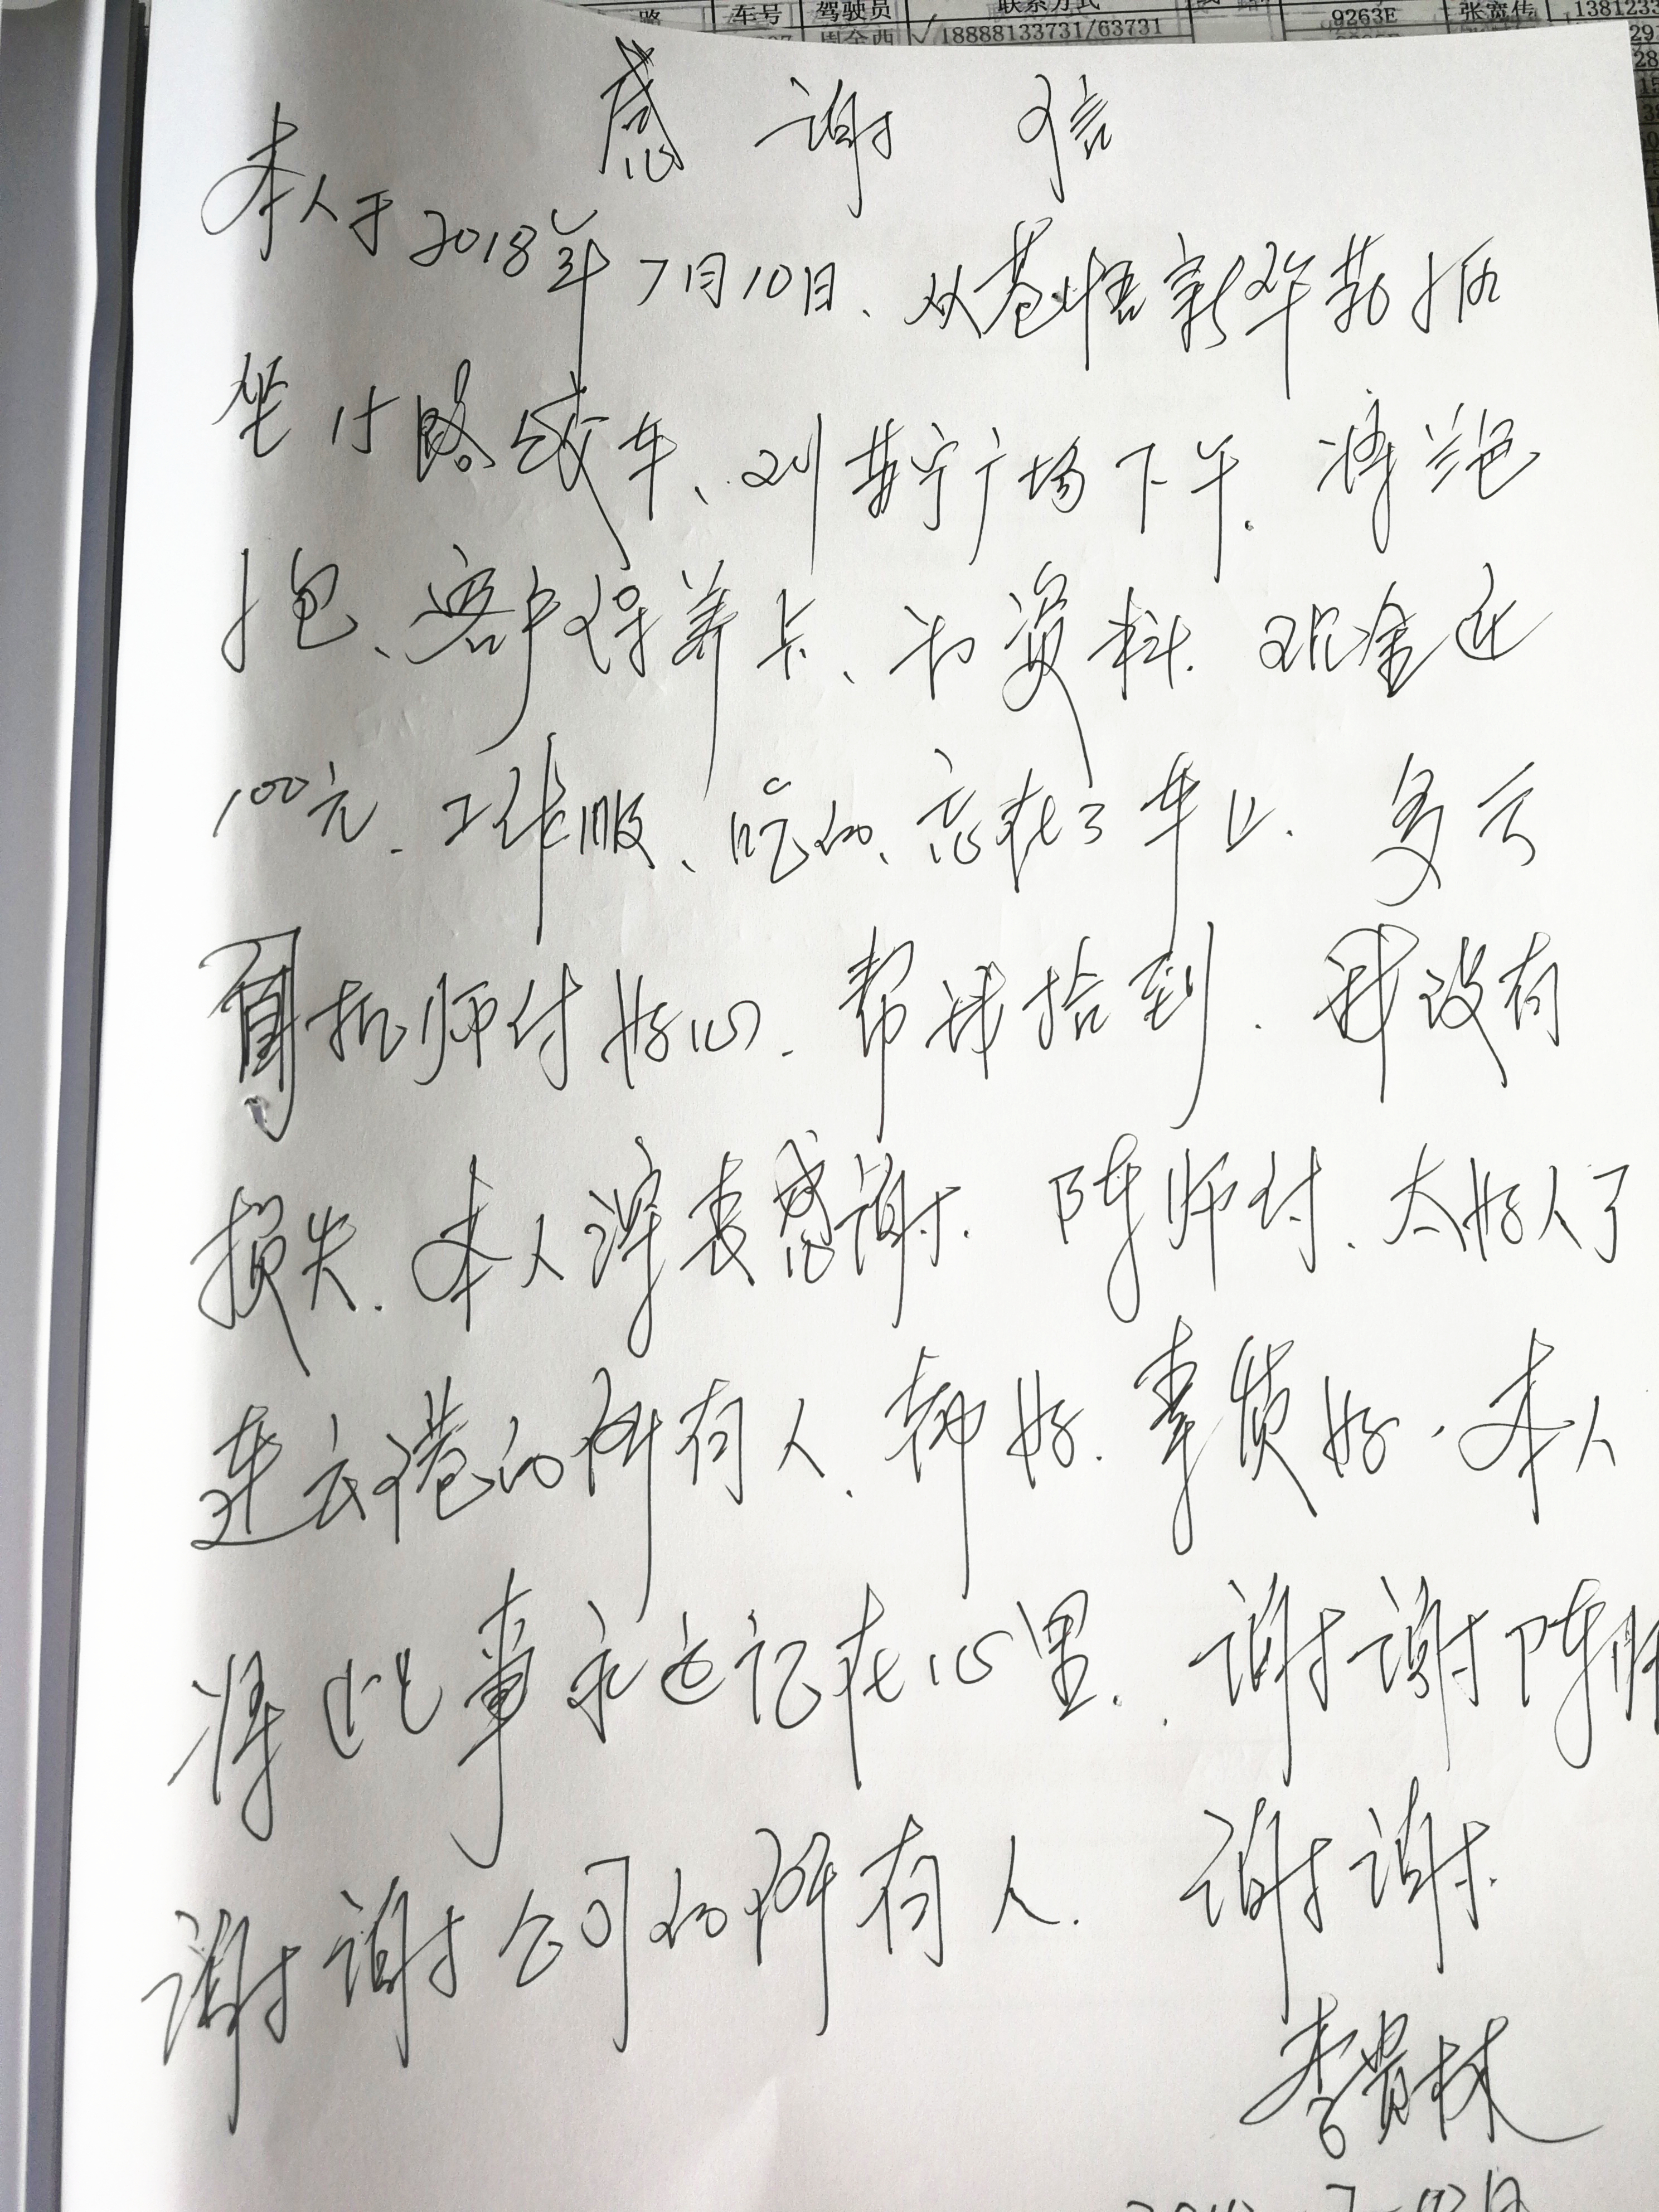 路 车号 驾驶员 联系方式 9263E 张宽传 1381233
周全西 √ 18888133731/63731
感谢信
本人于2018年7月10日、从苍梧新华药店
坐15路公车、到苏宁广场下车. 将
包、客户保养卡、和资料. 现金近
100元. 工作服、吃的、忘在了车上. 多亏
司机师付好心. 帮我拾到. 我没有
损失. 本人深表感谢. 陈师付. 太好人了
连云港的所有人. 都好. 素质好. 本人
将此事永远记在心里. 谢谢陈师
谢谢公司的所有人. 谢谢.
李贵林